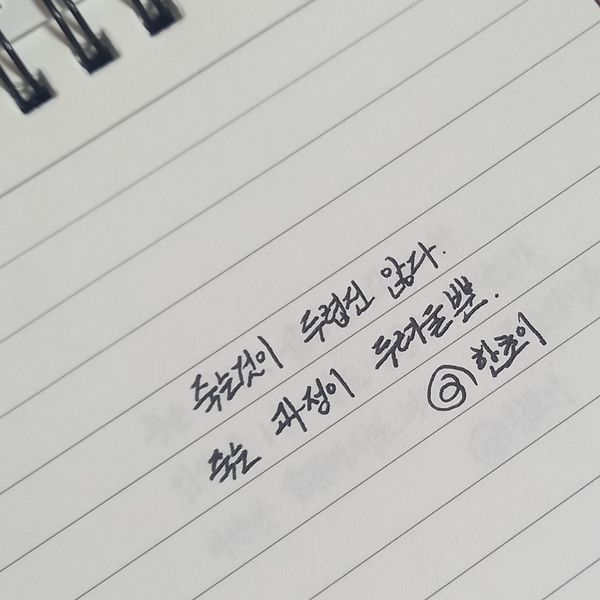 죽는것이 두렵진 않다.
죽는 과정이 두려울뿐.
@한초이